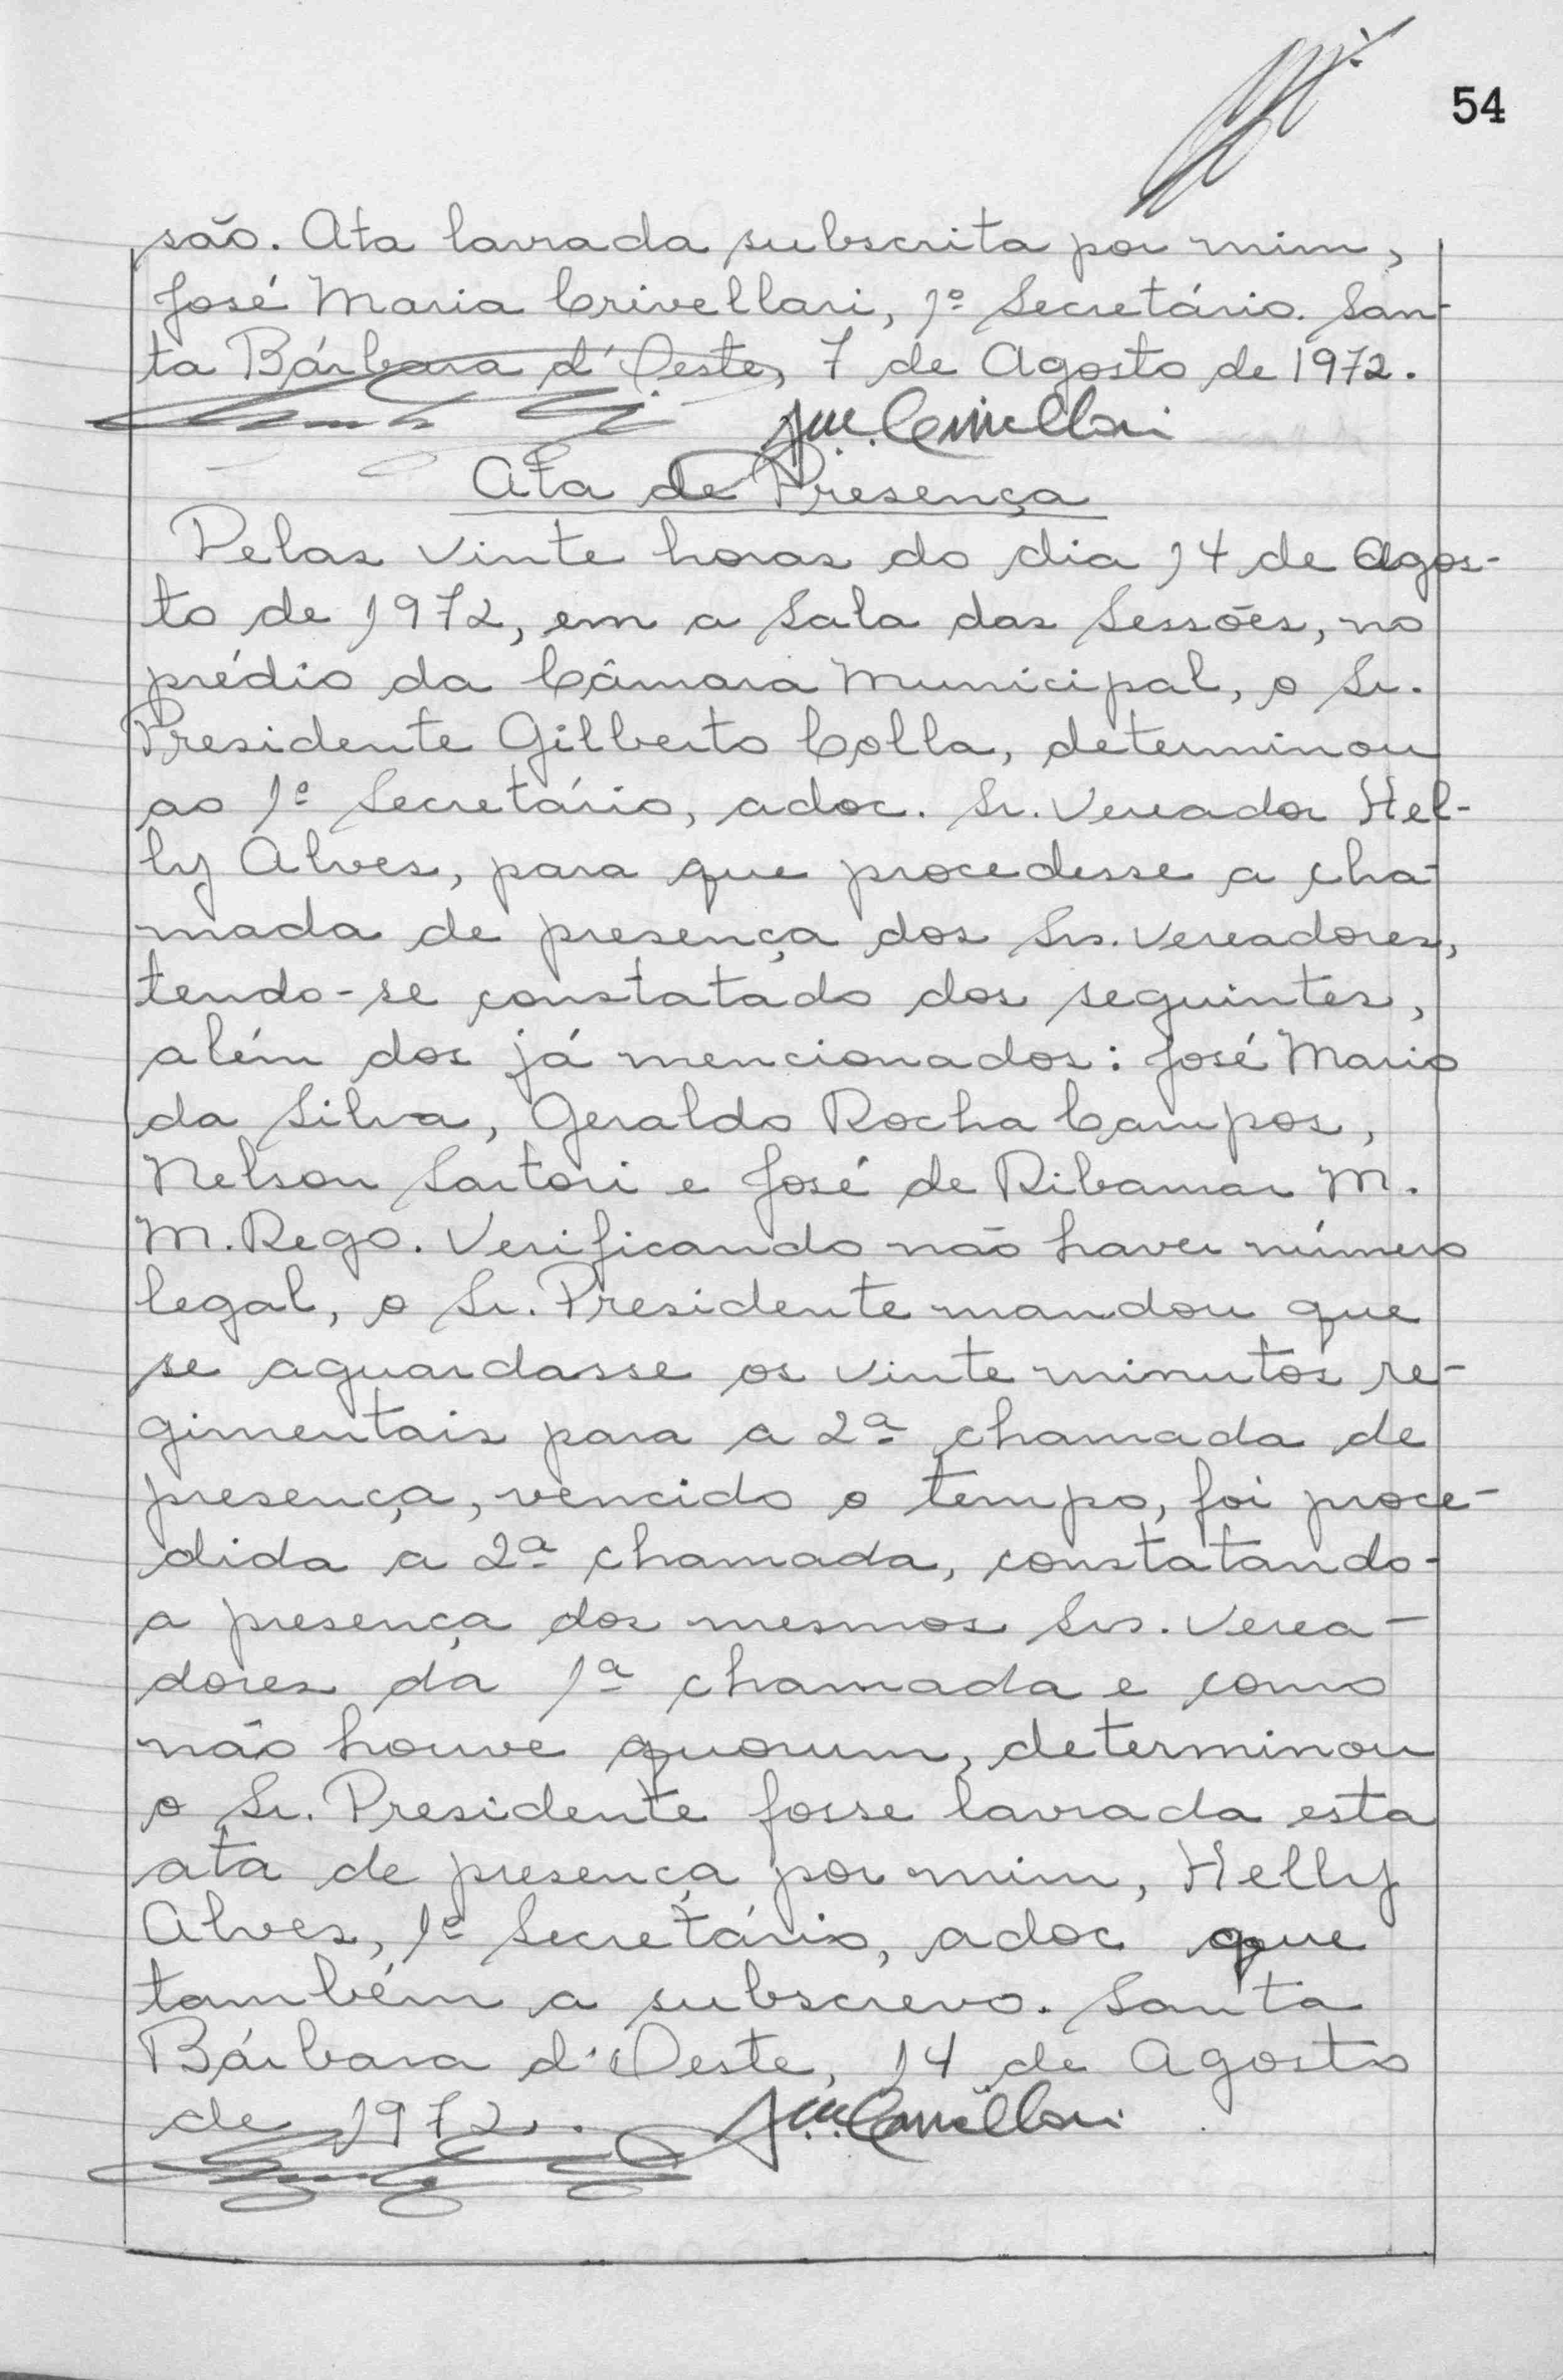 54
são. Ata lavrada subscrita por mim,
José Maria Crivellari, 1º Secretário. San-
ta Bárbara d'Oeste, 7 de Agosto de 1972.
Ata de Presença
Pelas vinte horas do dia 14 de Agos-
to de 1972, em a Sala das Sessões, no
prédio da Câmara Municipal, o Sr.
Presidente Gilberto Colla, determinou
ao 1º Secretário, adoc. Sr. Vereador Hel-
ly Alves, para que procedesse a cha-
mada de presença dos Srs. Vereadores,
tendo-se constatado dos seguintes,
além dos já mencionados: José Mario
da Silva, Geraldo Rocha Campos,
Nelson Sartori e José de Ribamar M.
M. Rego. Verificando não haver número
legal, o Sr. Presidente mandou que
se aguardasse os vinte minutos re-
gimentais para a 2ª chamada de
presença, vencido o tempo, foi proce-
dida a 2ª chamada, constatando-
a presença dos mesmos Srs. Verea-
dores da 1ª chamada e como
não houve quorum, determinou
o Sr. Presidente fosse lavrada esta
ata de presença por mim, Helly
Alves, 1º Secretário, adoc que
também a subscrevo. Santa
Bárbara d'Oeste, 14 de Agosto
de 1972.